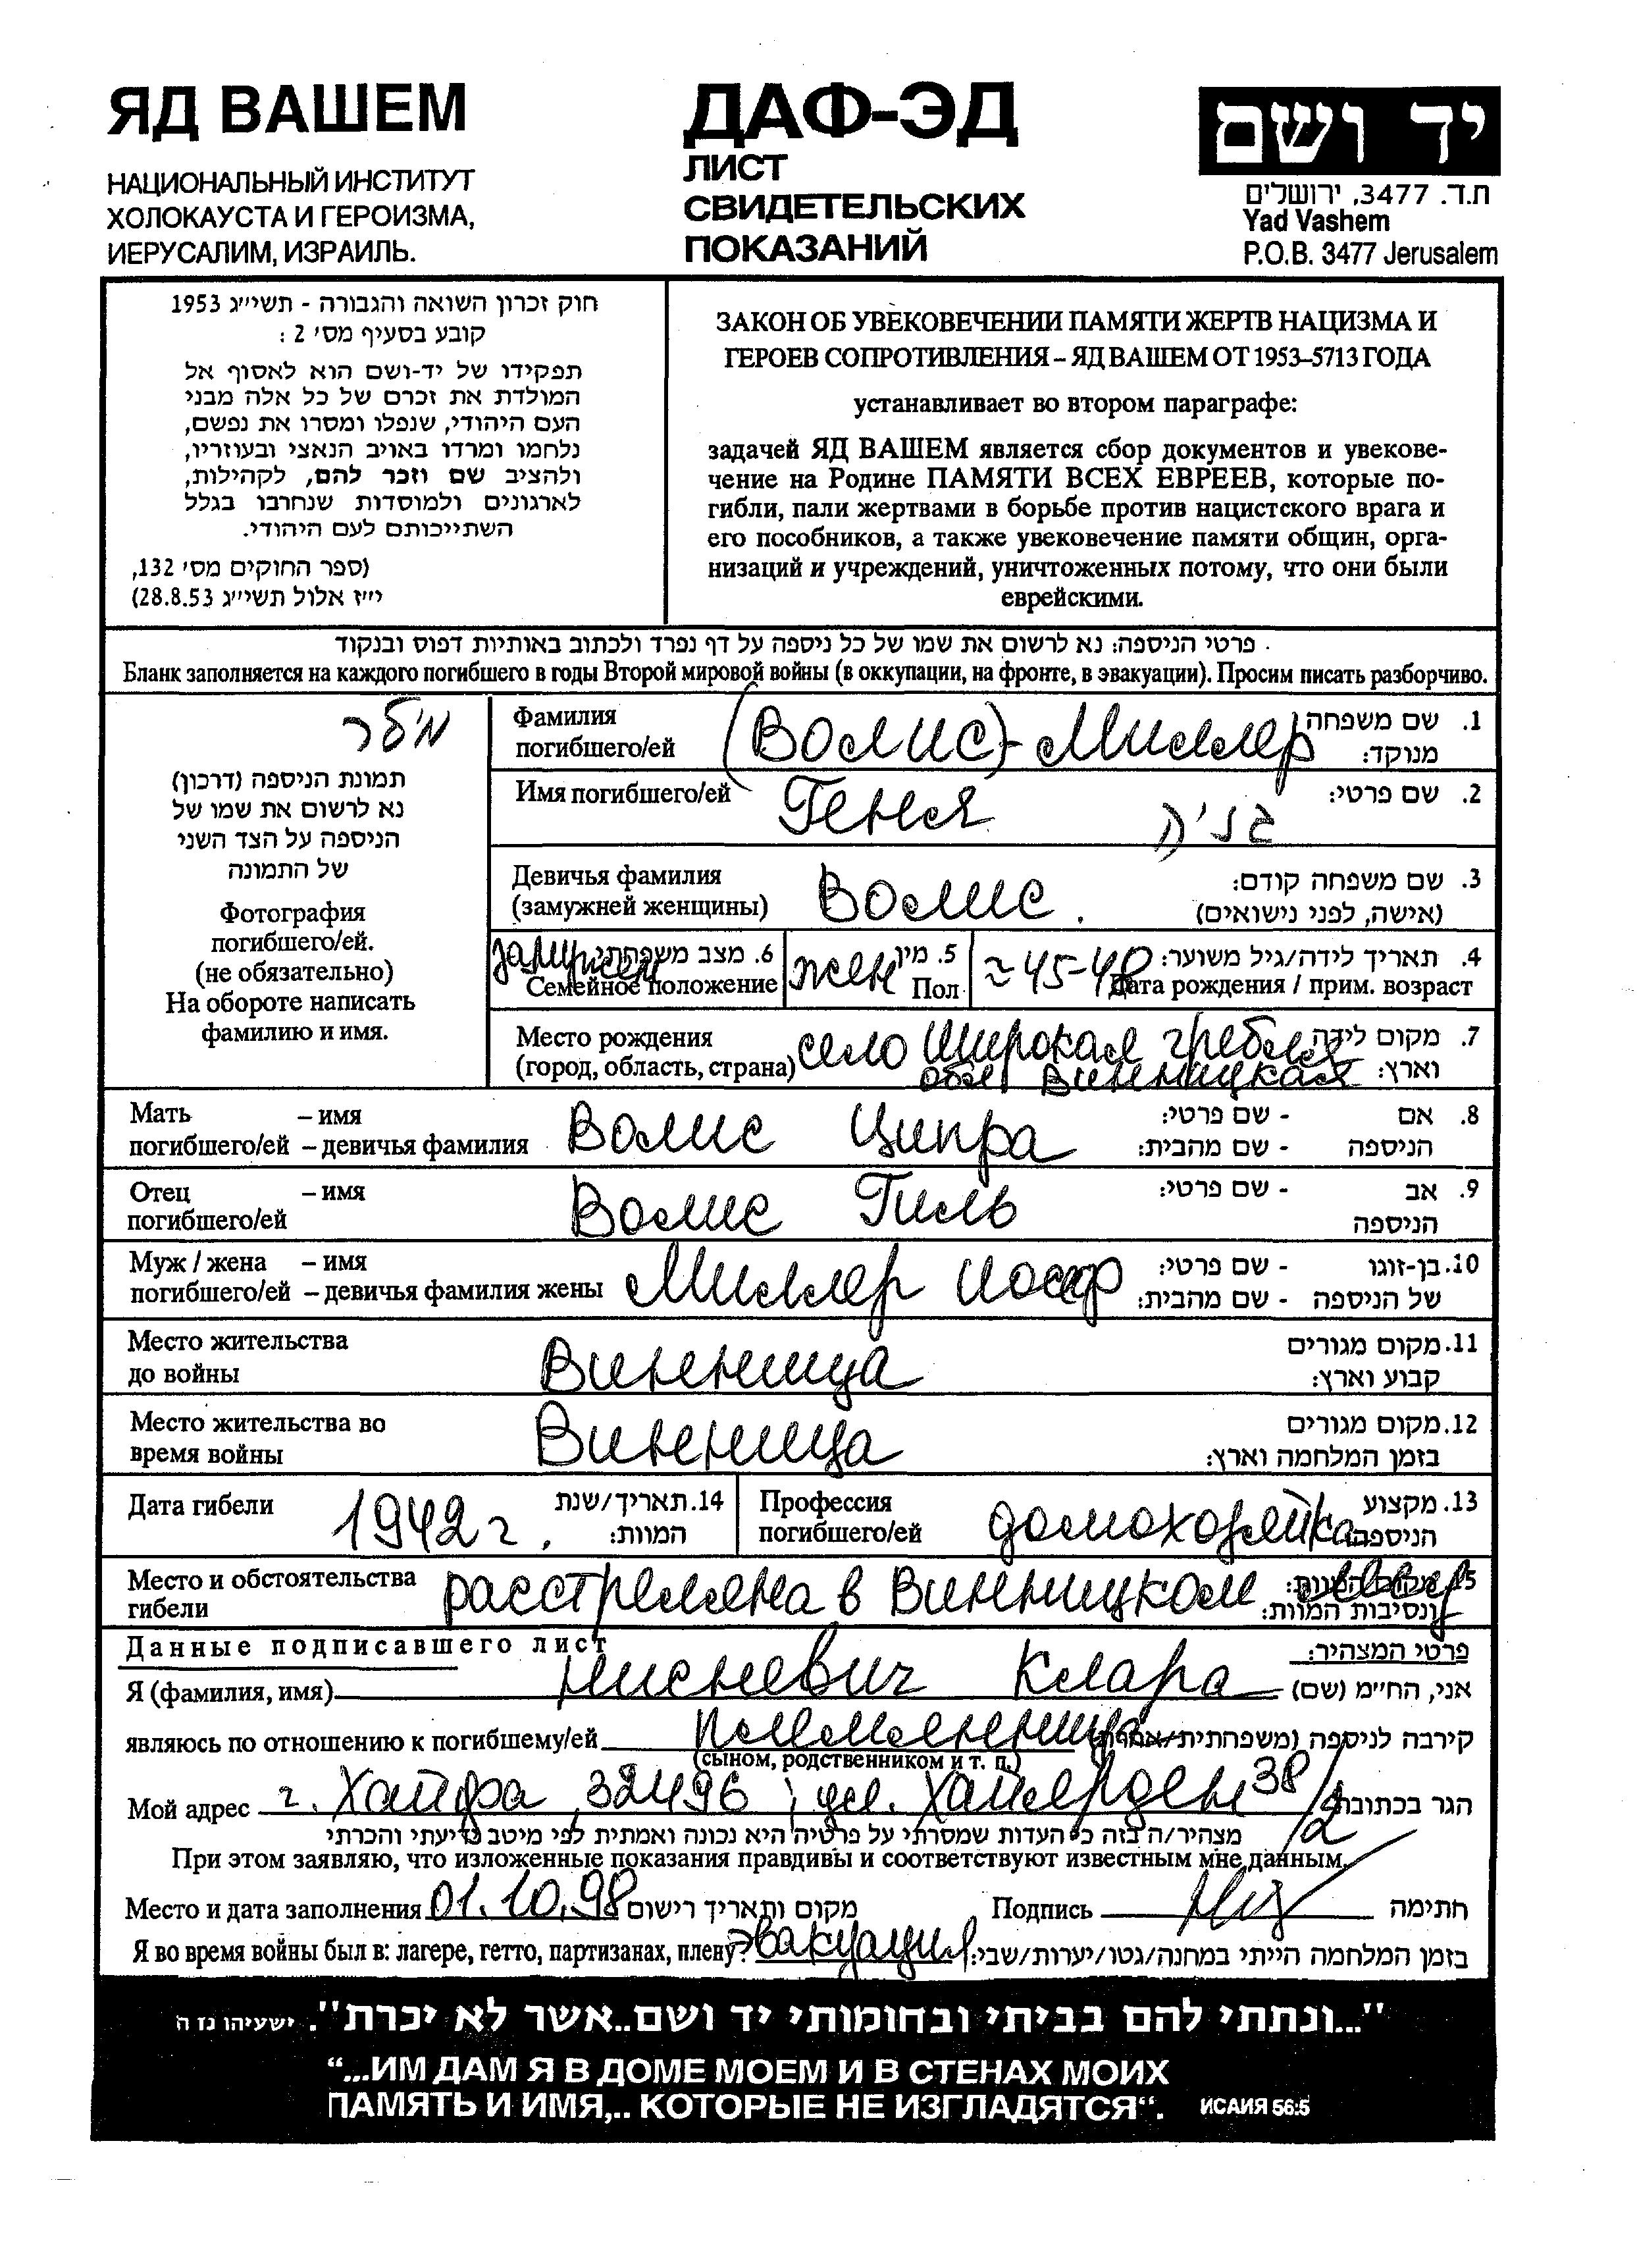 ЯД ВАШЕМ
НАЦИОНАЛЬНЫЙ ИНСТИТУТ
ХОЛОКАУСТА И ГЕРОИЗМА,
ИЕРУСАЛИМ, ИЗРАИЛЬ.
ДАФ-ЭД
ЛИСТ
СВИДЕТЕЛЬСКИХ
ПОКАЗАНИЙ
יד ושם
ת.ד. 3477, ירושלים
Yad Vashem
P.O.B. 3477 Jerusalem
חוק זכרון השואה והגבורה - תשי״ג 1953
קובע בסעיף מס׳ 2 :
תפקידו של יד-ושם הוא לאסוף אל
המולדת את זכרם של כל אלה מבני
העם היהודי, שנפלו ומסרו את נפשם,
נלחמו ומרדו באויב הנאצי ובעוזריו,
ולהציב שם וזכר להם, לקהילות,
לארגונים ולמוסדות שנחרבו בגלל
השתייכותם לעם היהודי.
(ספר החוקים מס׳ 132,
י״ז אלול תשי״ג 28.8.53)
ЗАКОН ОБ УВЕКОВЕЧЕНИИ ПАМЯТИ ЖЕРТВ НАЦИЗМА И
ГЕРОЕВ СОПРОТИВЛЕНИЯ – ЯД ВАШЕМ ОТ 1953–5713 ГОДА
устанавливает во втором параграфе:
задачей ЯД ВАШЕМ является сбор документов и увекове-
чение на Родине ПАМЯТИ ВСЕХ ЕВРЕЕВ, которые по-
гибли, пали жертвами в борьбе против нацистского врага и
его пособников, а также увековечение памяти общин, орга-
низаций и учреждений, уничтоженных потому, что они были
еврейскими.
פרטי הניספה: נא לרשום את שמו של כל ניספה על דף נפרד ולכתוב באותיות דפוס ובנקוד
Бланк заполняется на каждого погибшего в годы Второй мировой войны (в оккупации, на фронте, в эвакуации). Просим писать разборчиво.
מילר
תמונת הניספה (דרכון)
נא לרשום את שמו של
הניספה על הצד השני
של התמונה
Фотография
погибшего/ей.
(не обязательно)
На обороте написать
фамилию и имя.
Фамилия (Волис)-Миллер 1. שם משפחה
погибшего/ей מנוקד:
Имя погибшего/ей Геня גניה 2. שם פרטי:
Девичья фамилия Волис. 3. שם משפחה קודם:
(замужней женщины) (אישה, לפני נישואים)
замужем 6. מצב משפחתי жен 5. מין ≈ 45-48 4. תאריך לידה/גיל משוער:
Семейное положение Пол Дата рождения / прим. возраст
Место рождения село Широкая гребля 7. מקום לידה
(город, область, страна) обл. Винницкая וארץ:
Мать – имя Волис Ципра 8. אם - שם פרטי:
погибшего/ей – девичья фамилия הניספה - שם מהבית:
Отец – имя Волис Гиль 9. אב - שם פרטי:
погибшего/ей הניספה
Муж / жена – имя Миллер Иосиф 10. בן-זוגו - שם פרטי:
погибшего/ей – девичья фамилия жены של הניספה - שם מהבית:
Место жительства Винница 11. מקום מגורים
до войны קבוע וארץ:
Место жительства во Винница 12. מקום מגורים
время войны בזמן המלחמה וארץ:
Дата гибели 1942 г. 14. תאריך/שנת
המוות:
Профессия домохозяйка 13. מקצוע
погибшего/ей הניספה
Место и обстоятельства расстреляна в Винницком 15. מקום המוות:
гибели ונסיבות המוות:
Данные подписавшего лист פרטי המצהיר:
Я (фамилия, имя) Мисневич Клара אני, הח״מ (שם)
являюсь по отношению к погибшему/ей племянница קירבה לניספה (משפחתית/אחרת)
(сыном, родственником и т. п.)
Мой адрес г. Хайфа, 32496, ул. 38/2 הגר בכתובת
מצהיר/ה בזה כי העדות שמסרתי על פרטיה היא נכונה ואמתית לפי מיטב ידיעתי והכרתי
При этом заявляю, что изложенные показания правдивы и соответствуют известным мне данным.
Место и дата заполнения 01.10.98 מקום ותאריך רישום Подпись חתימה
Я во время войны был в: лагере, гетто, партизанах, плену? эвакуация בזמן המלחמה הייתי במחנה/גטו/יערות/שבי:
"...ונתתי להם בביתי ובחומותי יד ושם..אשר לא יכרת". ישעיהו נז ה
“...ИМ ДАМ Я В ДОМЕ МОЕМ И В СТЕНАХ МОИХ
ПАМЯТЬ И ИМЯ,.. КОТОРЫЕ НЕ ИЗГЛАДЯТСЯ“. ИСАИЯ 56:5